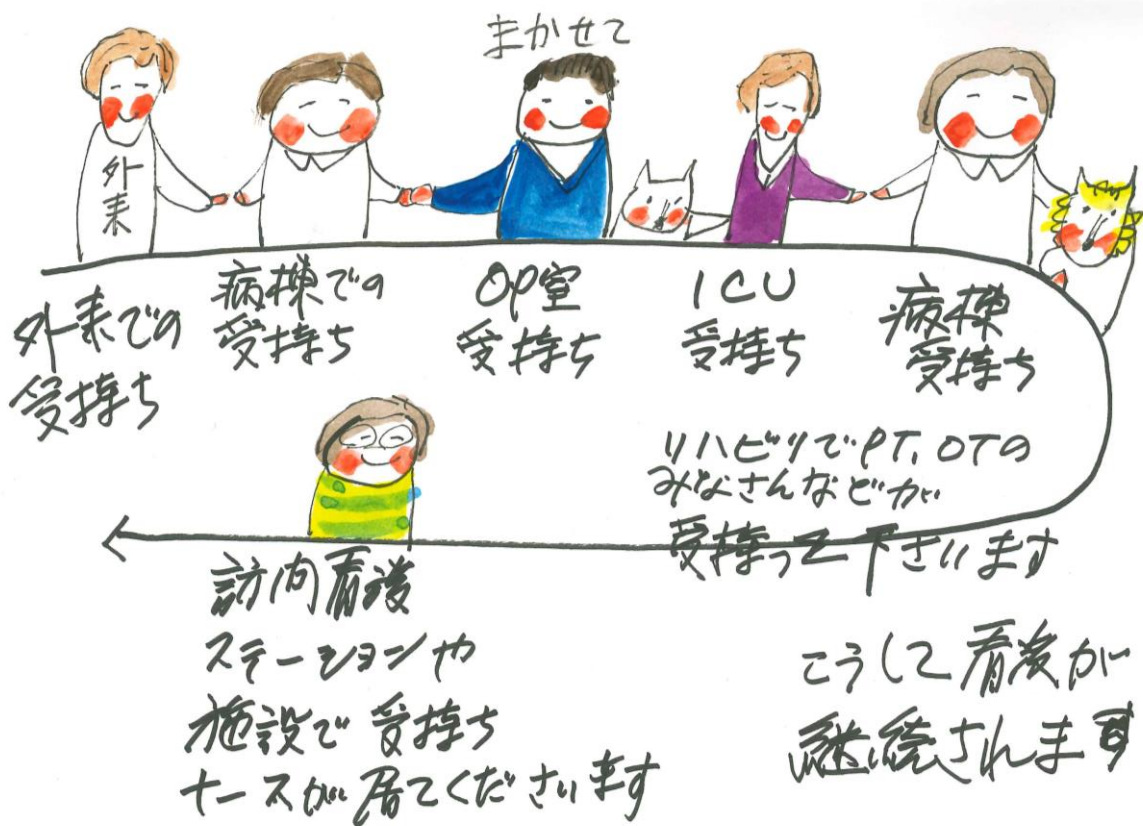 まかせて
外来
外来での
受持ち
病棟での
受持ち
OP室
受持ち
ICU
受持ち
病棟
受持ち
リハビリでPT、OTの
みなさんなどが
受持って下さいます
訪問看護
ステーションや
施設で受持ち
ナースが居てくださいます
こうして看護が
継続されます